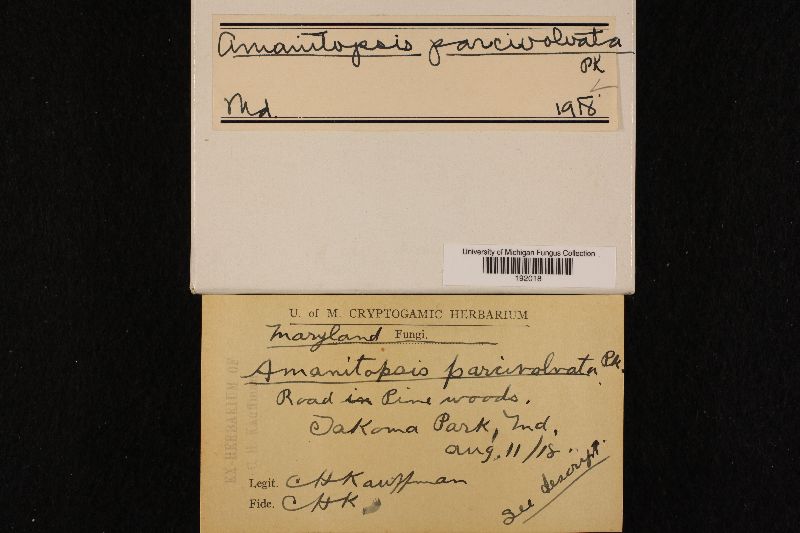 Amanitopsis parcivolvata
PK
Md. 1918
University of Michigan Fungus Collection
192018
U. of M. CRYPTOGAMIC HERBARIUM
Maryland Fungi.
Amanitopsis parcivolvata Pk.
Road in Pine woods.
Takoma Park, Md.
Aug. 11/18.
Legit. CHKauffman
Fide. CHK
see descript.
EX-HERBARIUM OF
C. H. Kauffman